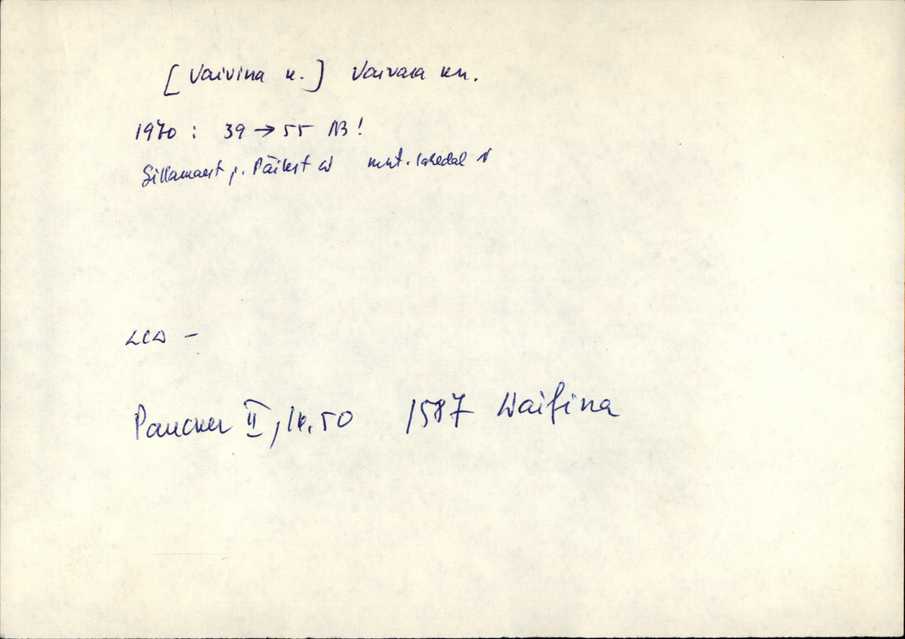 [Vaivina k.] Vaivara kn.
1970 : 39 → 55 NB!
Sillamaest p. Päitest W mnt. lahedal N
LCD –
Paucker II, lk. 50 1587 Waifina